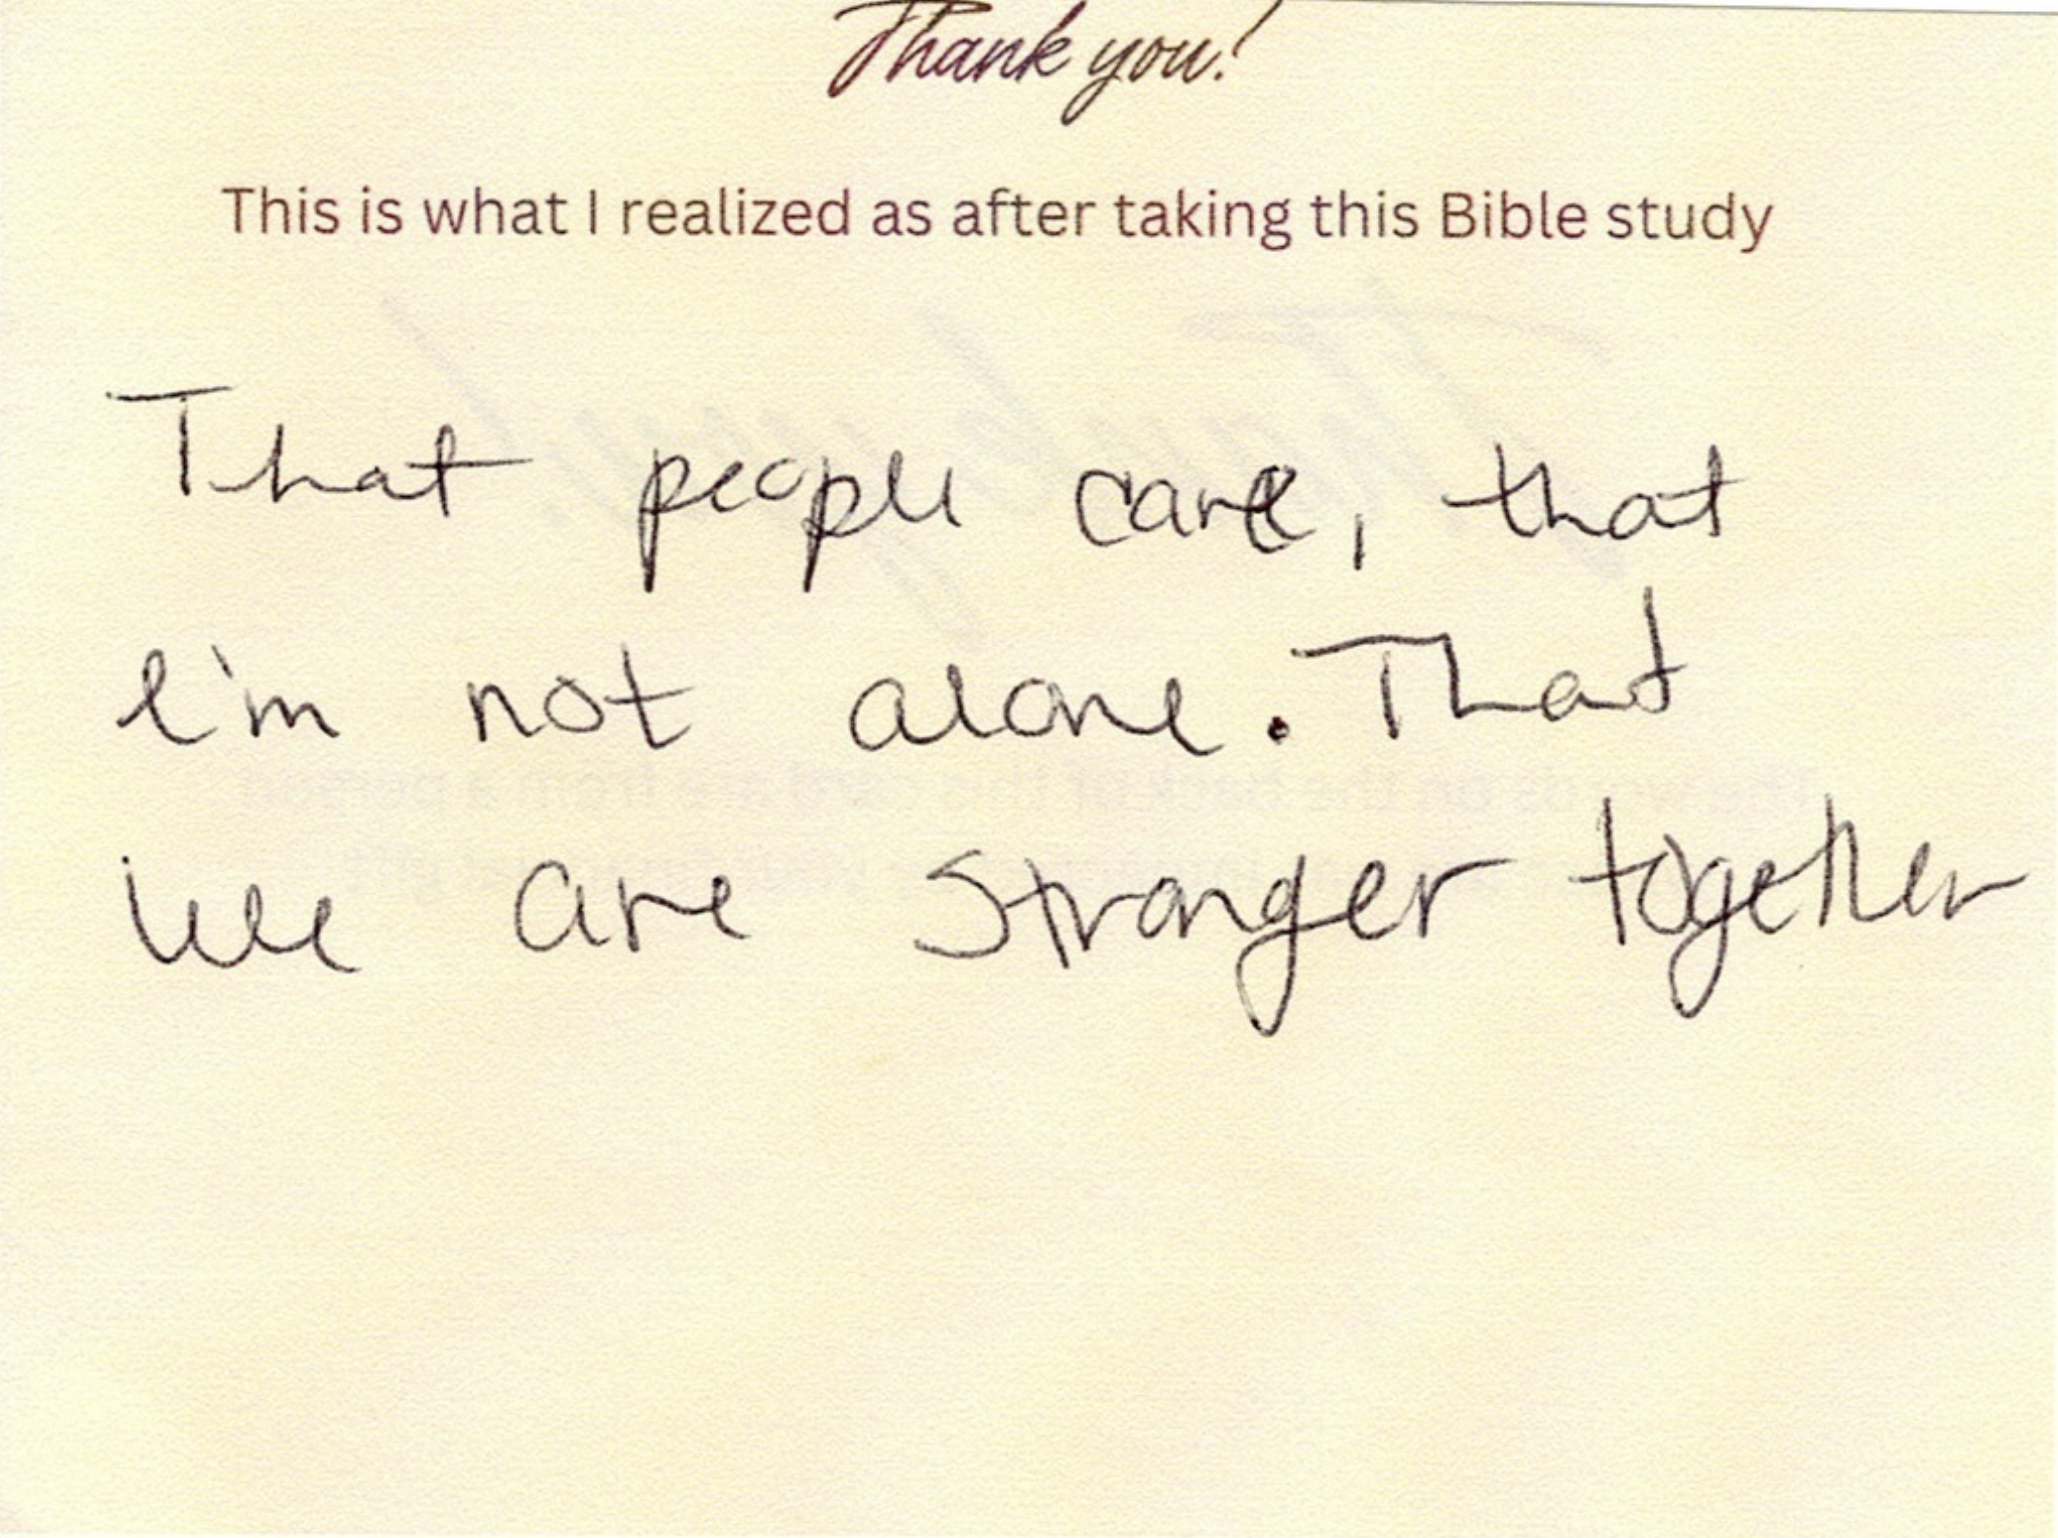 Thank you!
This is what I realized as after taking this Bible study
That people care, that
I'm not alone. That
we are stronger together